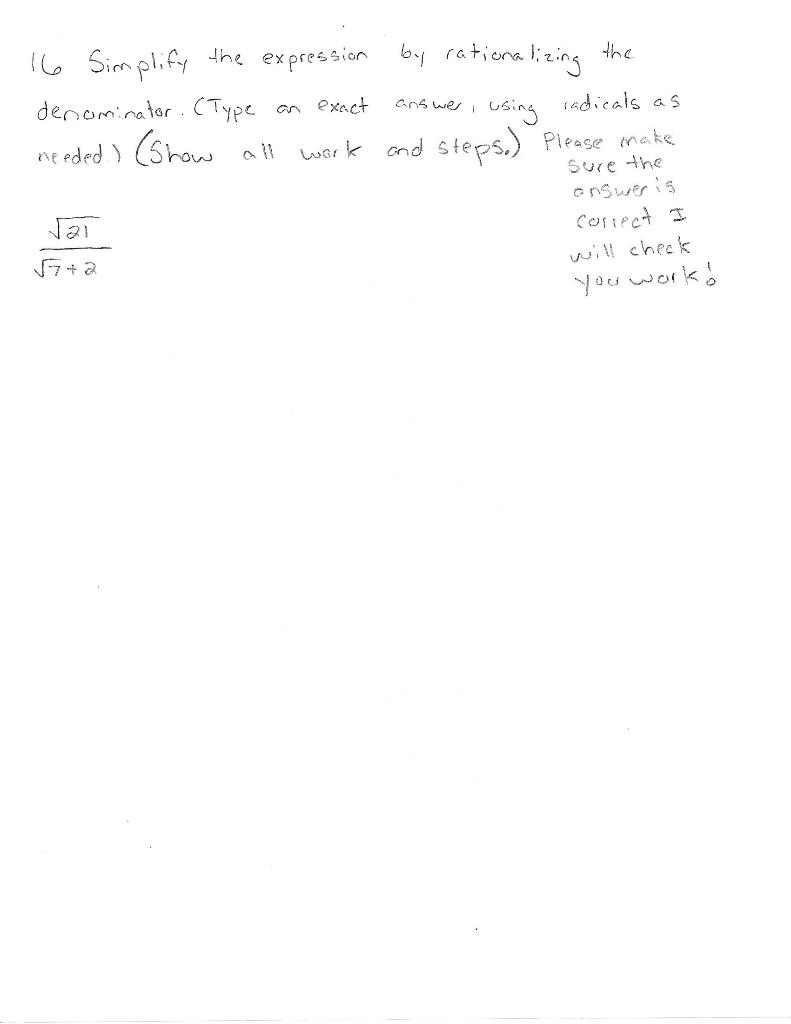 16 Simplify the expression by rationalizing the
denominator. (Type an exact answer, using radicals as
needed.) (Show all work and steps.) Please make
sure the
answer is
correct I
will check
you work!
√21
√7+2